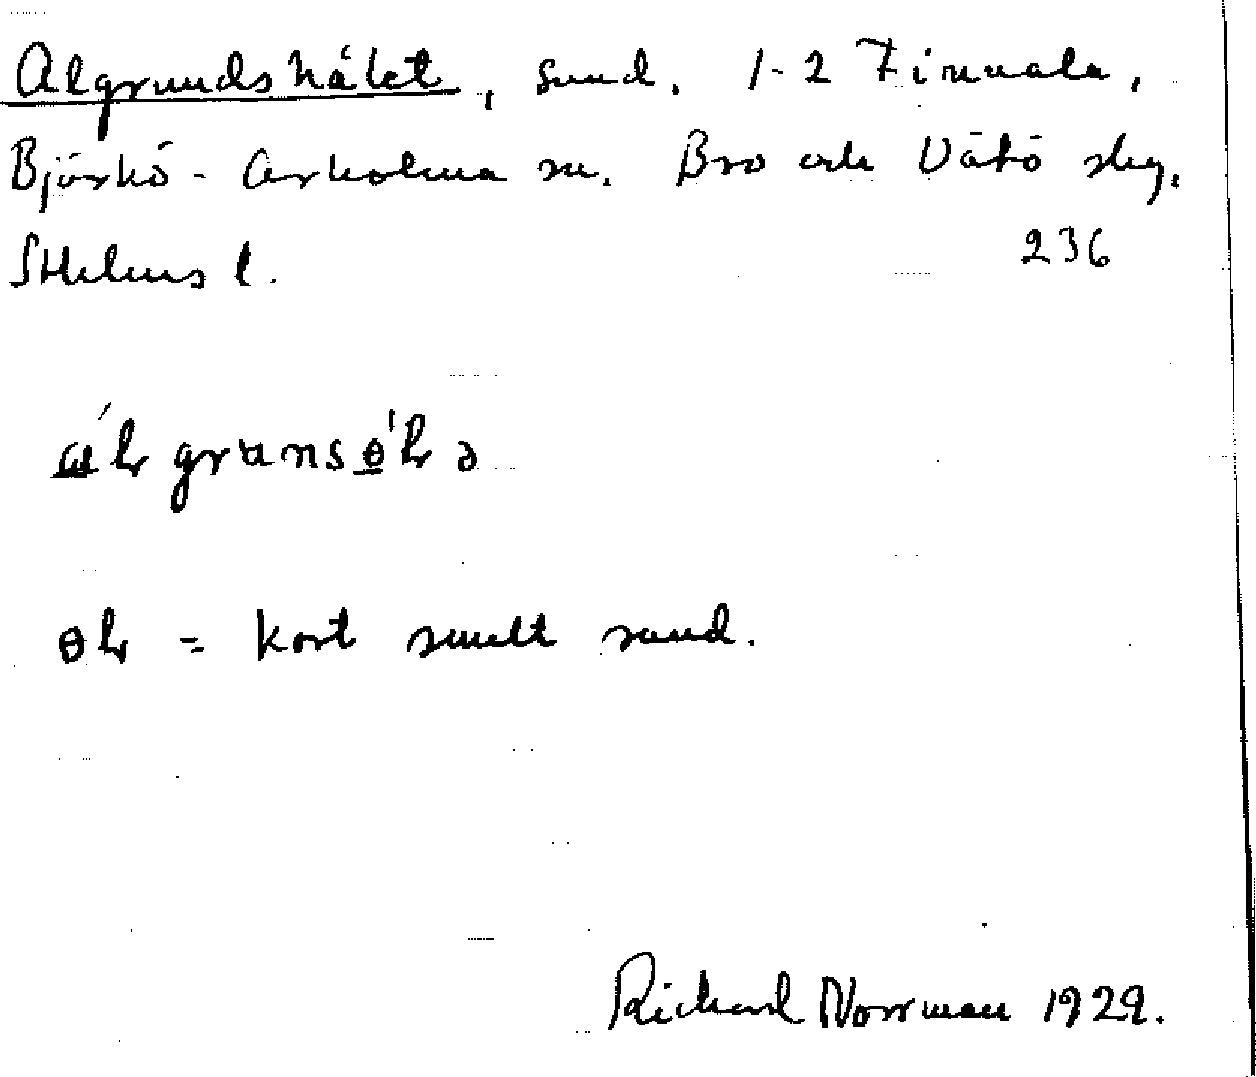 Algrundshålet, sund. 1-2 Finnala,
Björkö-Arholma sn. Bro och Vätö skg.
Sthlms l. 236
grunsθ
= kort smalt sund.
Richard Norrman 1929.